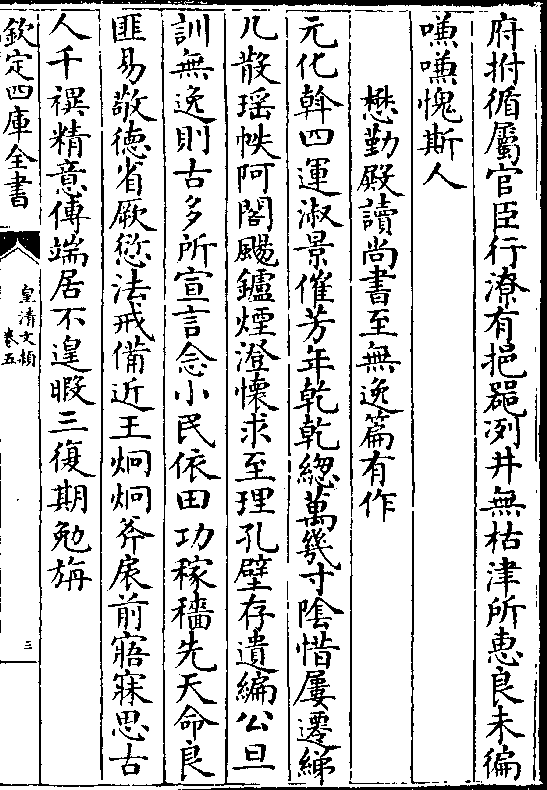 府拊循屬官臣行潦有挹罍洌井無枯津所惠良未徧
嗛嗛愧斯人
懋勤殿讀尚書至無逸篇有作
元化斡四運淑景催芳年乾乾總萬幾寸陰惜屢遷綈
几散瑶帙阿閣颺鑪煙澄懷求至理孔壁存遺編公旦
訓無逸則古多所宣言念小民依田功稼穡先天命良
匪易敬德省厥愆法戒備近王炯炯斧扆前寤寐思古
人千禩精意傳端居不遑暇三復期勉旃
欽定四庫全書
皇清文穎
卷五
三